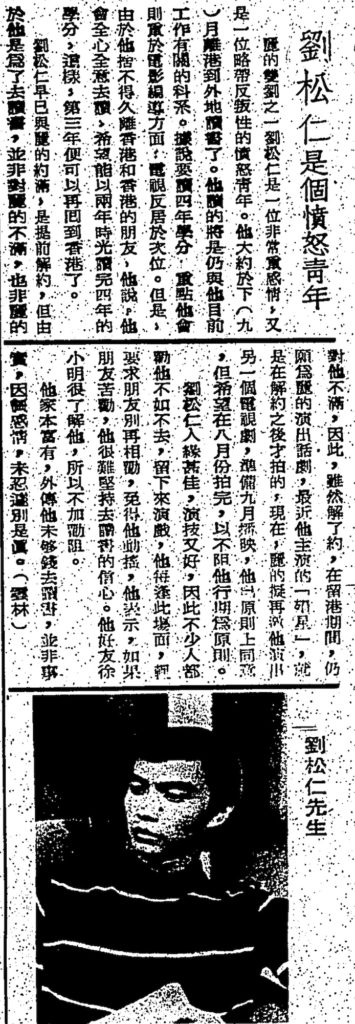 劉松仁是個憤怒青年
麗的雙劉之一劉松仁是一位非常重感情,又
是一位略帶反叛性的憤怒青年。他大約於下(九
)月離港到外地讀書了。他讀的將是仍與他目前
工作有關的科系。據說要讀四年學分,重點他會
則重於電影編導方面,電視反居於次位。但是,
由於他捨不得久離香港和香港的朋友,他說,他
會全心全意去讀,希望能以兩年時光讀完四年的
學分,這樣,第三年便可以再回到香港了。
劉松仁早已與麗的約滿,是提前解約,但由
於他是為了去讀書,並非對麗的不滿,也非麗的
對他不滿,因此,雖然解了約,在留港期間,仍
願為麗的演出話劇,最近他主演的「殞星」,就
是在解約之後才拍的,現在,麗的擬再邀他演出
另一個電視劇,準備九月播映,他已原則上同意
,但希望在八月份拍完,以不阻他行期為原則。
劉松仁人緣甚佳,演技又好,因此不少人都
勸他不如不去,留下來演戲,他每逢此場面,輒
要求朋友別再相勸,免得他動搖,他表示,如果
朋友苦勸,他很難堅持去讀書的信心。他好友徐
小明很了解他,所以不加勸阻。
他家本富有,外傳他未夠錢去讀書,並非事
實,因重感情,未忍遽別是真。(雲林)
劉松仁先生